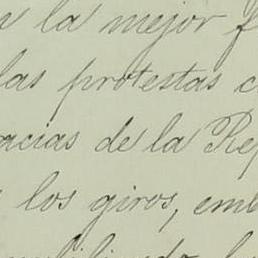 la mejor f
las protestas c
acias de la Rep
los giros, emb